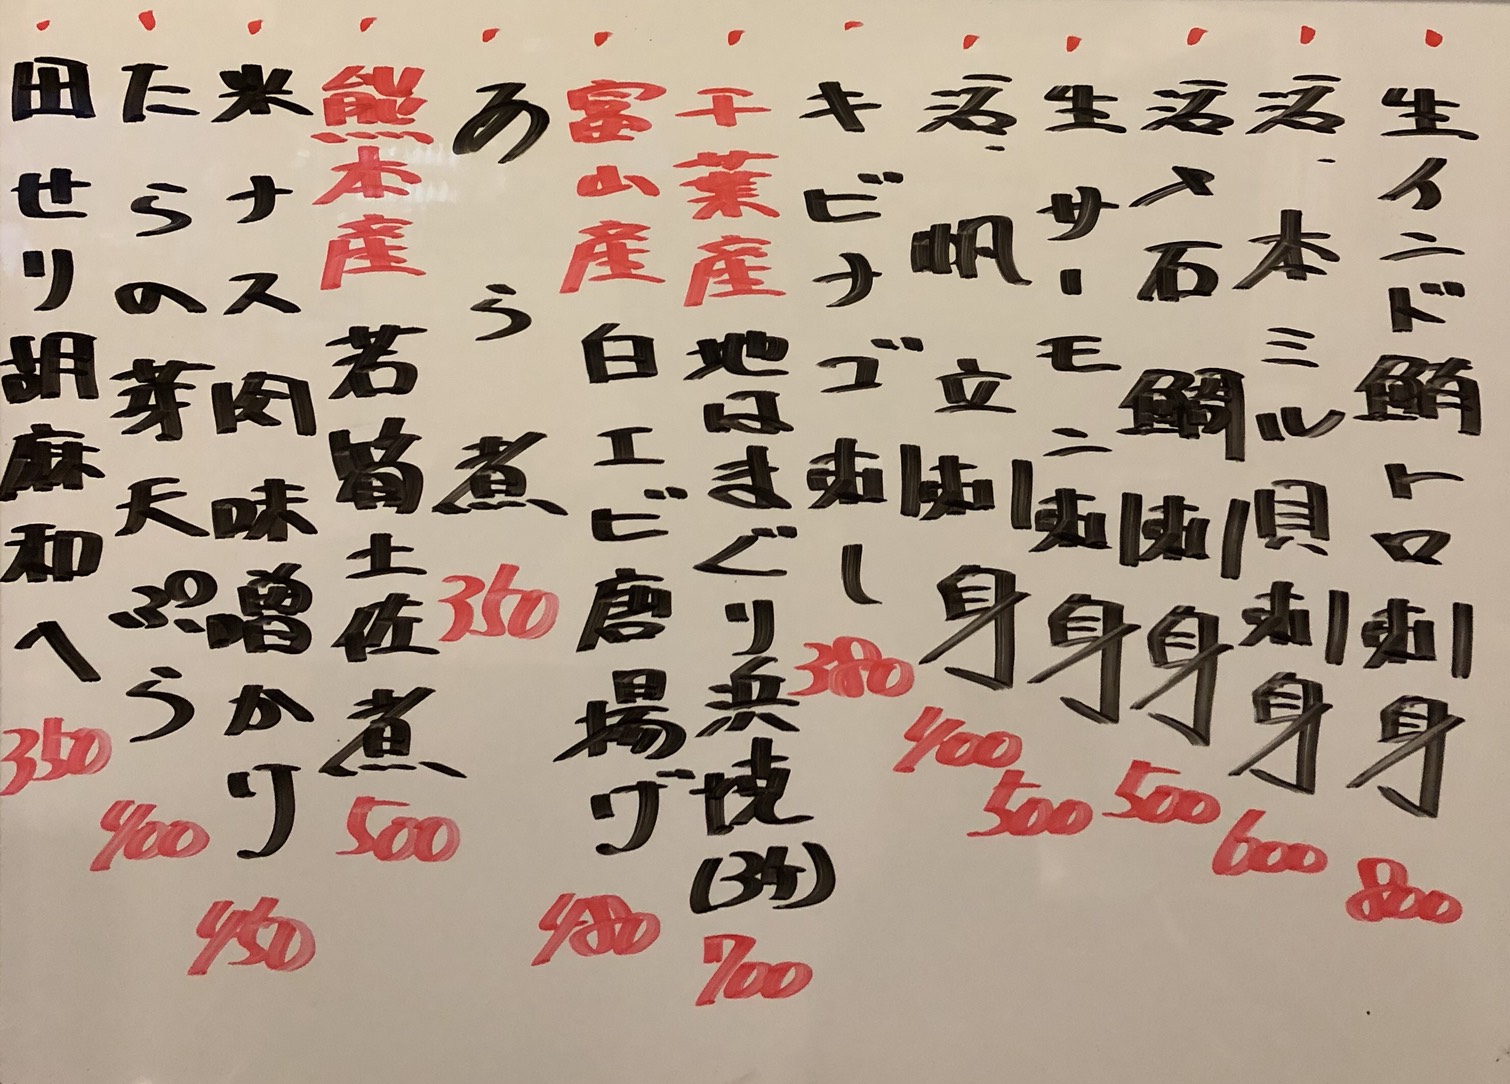 生インド鮪トロ刺身 800
活本ミル貝刺身 600
活〆石鯛刺身 500
生サーモン刺身 500
活帆立刺身 400
キビナゴ刺し 380
千葉産地はまぐり浜焼(3ケ) 700
富山産白エビ唐揚げ 480
あら煮 350
熊本産若筍土佐煮 500
米ナス肉味噌かけ 450
たらの芽天ぷら 400
田せり胡麻和へ 350